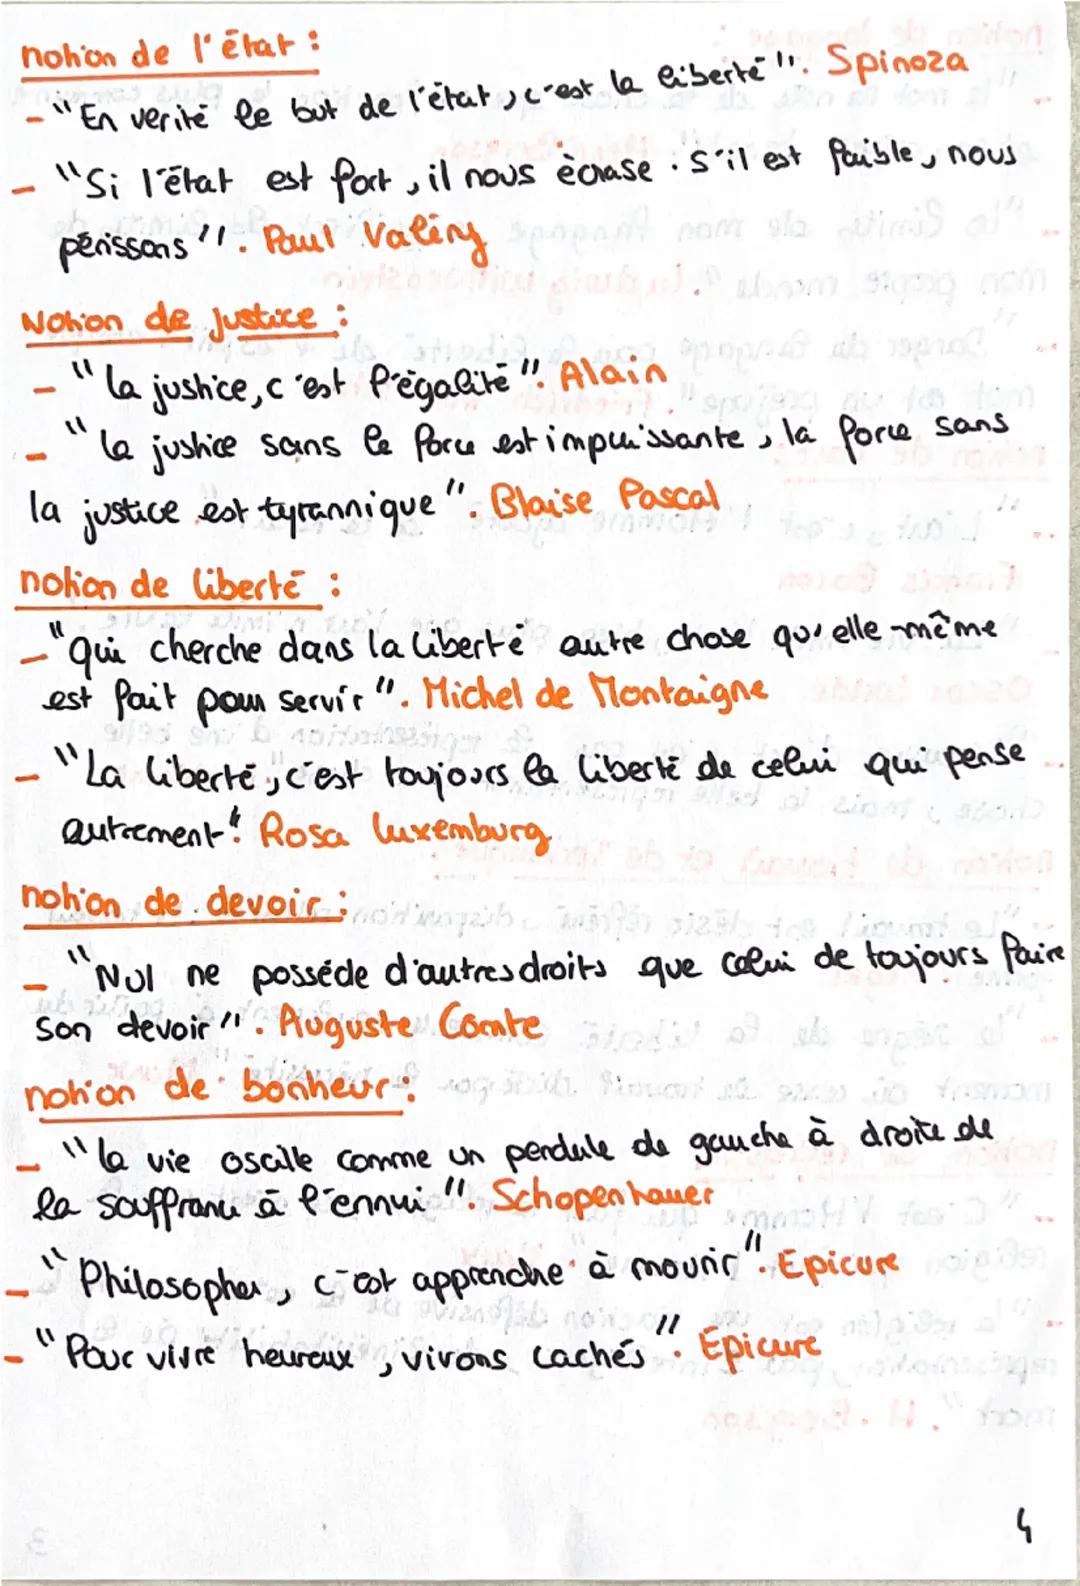 notion de l'état :
- "En verité le but de l'état, c'est la liberté". Spinoza
- "Si l'état est fort, il nous écrase . s'il est faible, nous
périssons". Paul Valéry
Notion de justice :
- "la justice, c'est l'égalité". Alain
- "la justice sans le force est impuissante, la force sans
la justice est tyrannique". Blaise Pascal
notion de liberté :
- "qui cherche dans la liberté autre chose qu'elle-même
est fait pour servir". Michel de Montaigne
- "La liberté, c'est toujours la liberté de celui qui pense
autrement". Rosa Luxemburg
notion de devoir :
- "Nul ne posséde d'autres droits que celui de toujours faire
son devoir". Auguste Comte
notion de bonheur :
- "la vie oscille comme un pendule de gauche à droite de
la souffrance à l'ennui". Schopenhauer
- "Philosopher, c'est apprendre à mourir". Epicure
- "Pour vivre heureux, vivons cachés". Epicure
4